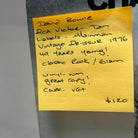 David Bowie
RCA Victor - Tan
Labels - Mainman
Vintage Re-issue 1976
49 years young!
Classic Rock / Glam
Vinyl - NM
great copy!
Cover - VG+
$180